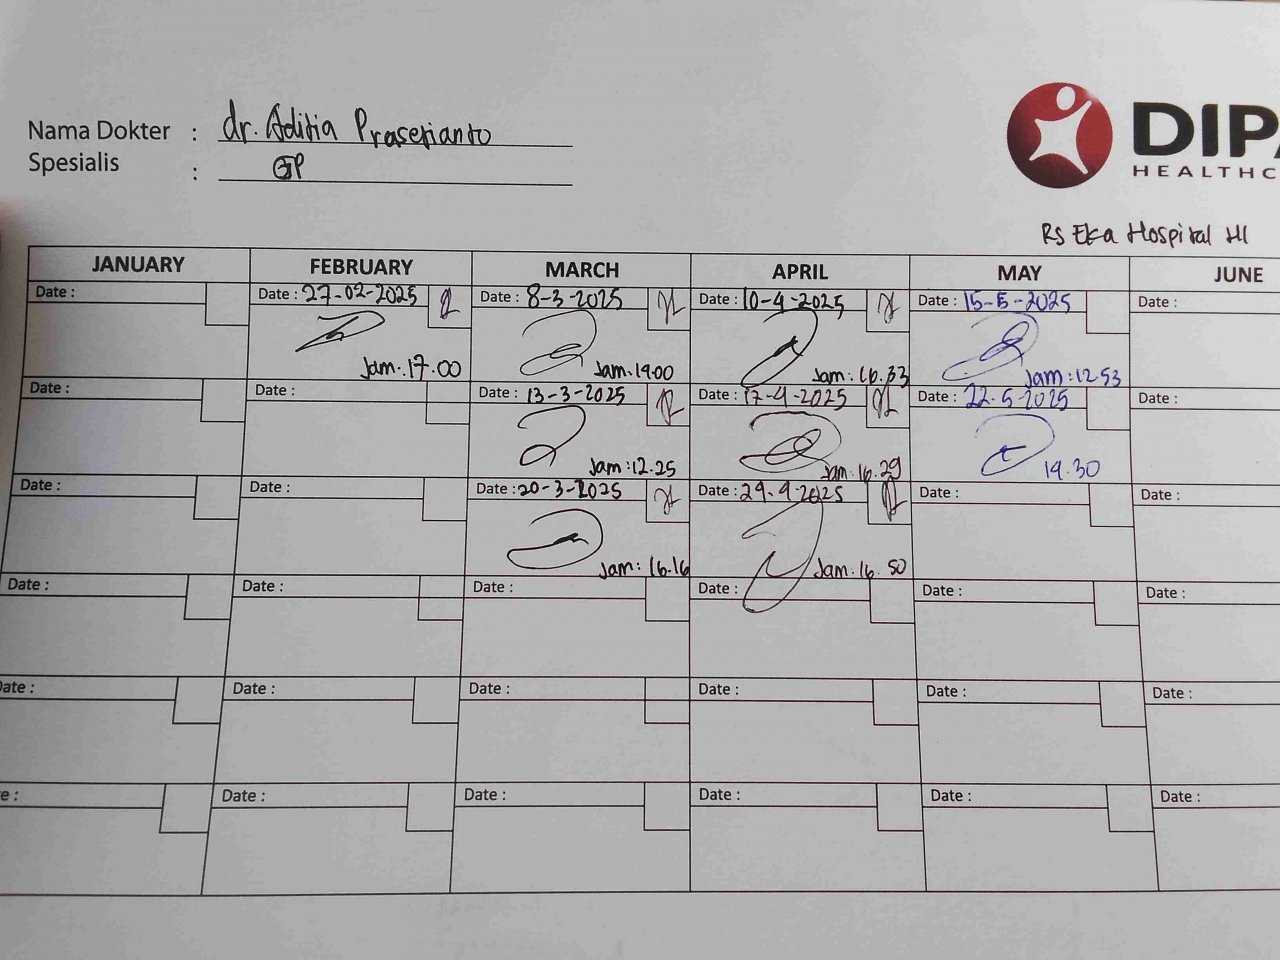 Nama Dokter : dr. Aditia Prasetianto
Spesialis : GP
DIPA
HEALTHC
RS Eka Hospital HI
JANUARY FEBRUARY MARCH APRIL MAY JUNE
Date : Date : 27-02-2025 Date : 8-3-2025 Date : 10-4-2025 Date : 15-5-2025 Date :
Jam: 17.00 Jam: 19.00 Jam: 16.33 Jam: 12.53
Date : Date : Date : 13-3-2025 Date : 17-4-2025 Date : 22-5-2025 Date :
Jam: 12.25 Jam: 16.29 19.30
Date : Date : Date : 20-3-2025 Date : 29-4-2025 Date : Date :
Jam: 16.16 Jam: 16.50
Date : Date : Date : Date : Date : Date :
Date : Date : Date : Date : Date : Date :
e : Date : Date : Date : Date : Date :